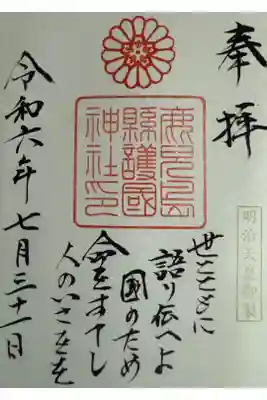 奉拝
明治天皇御製
世とともに
語り伝へよ
国のため
命をすてし
人のいさをを
鹿兒島
縣護國
神社印
令和六年七月三十一日